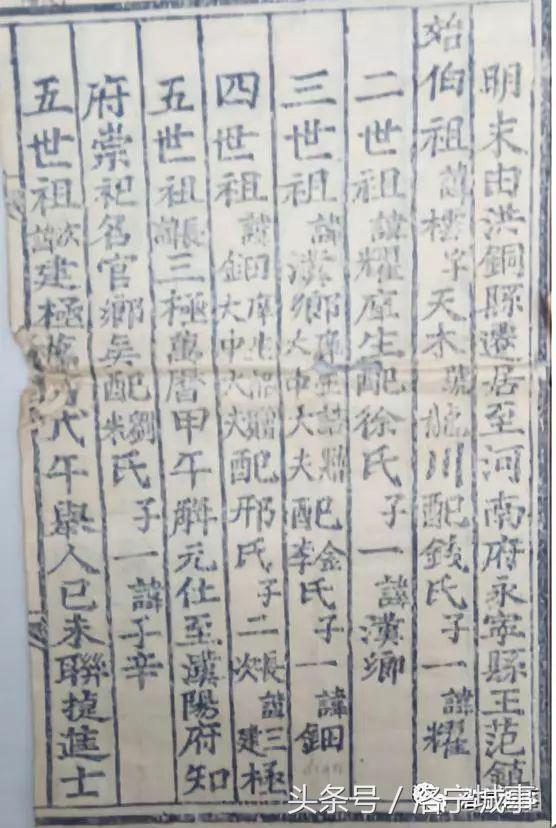 明末由洪銅縣遷居至河南府永寧縣王范鎮
始伯祖諱樸字天木號龍川配錢氏子一諱耀
二世祖諱耀庠生配徐氏子一諱漢卿
三世祖諱漢鄉庠生誥贈大中大夫配金李氏子一諱鈿
四世祖諱田鈿庠生誥贈大中大夫配邢氏子二長諱三次建極
五世祖長諱三極萬曆甲午解元仕至漢陽府知
府崇祀名官鄉矣配劉朱氏子一諱子辛
五世祖次諱建極萬戊午舉人已未聯捷進士
头条号/洛宁城事